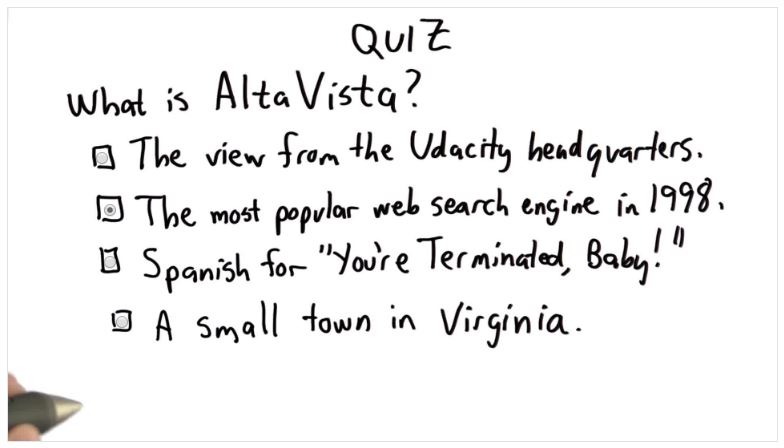 QUIZ
What is AltaVista?
The view from the Udacity headquarters.
The most popular web search engine in 1998.
Spanish for "You're Terminated, Baby!"
A small town in Virginia.